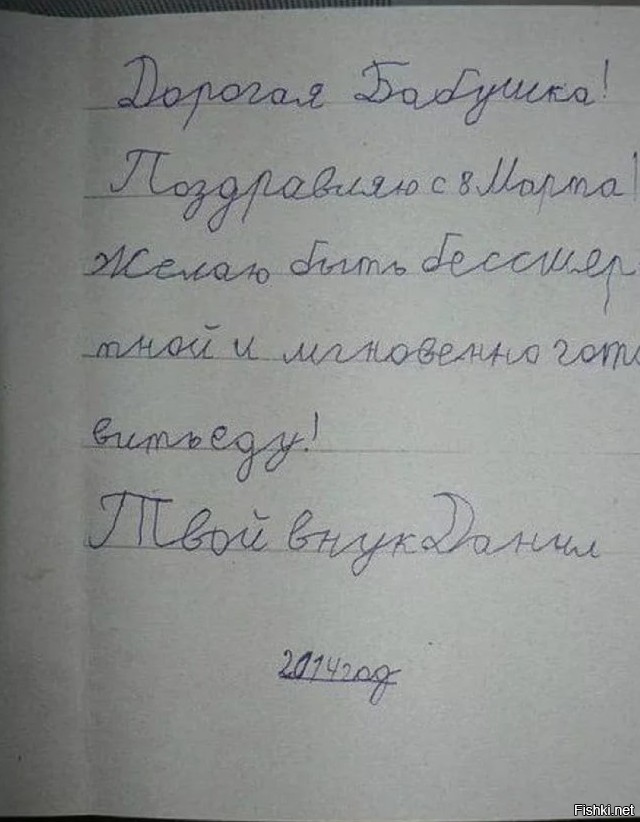 Дорогая Бабушка!
Поздравляю с 8 Марта!
Желаю быть бессмер-
тной и мгновенно гото
вить еду!
Твой внук Данил
2014 год
Fishki.net